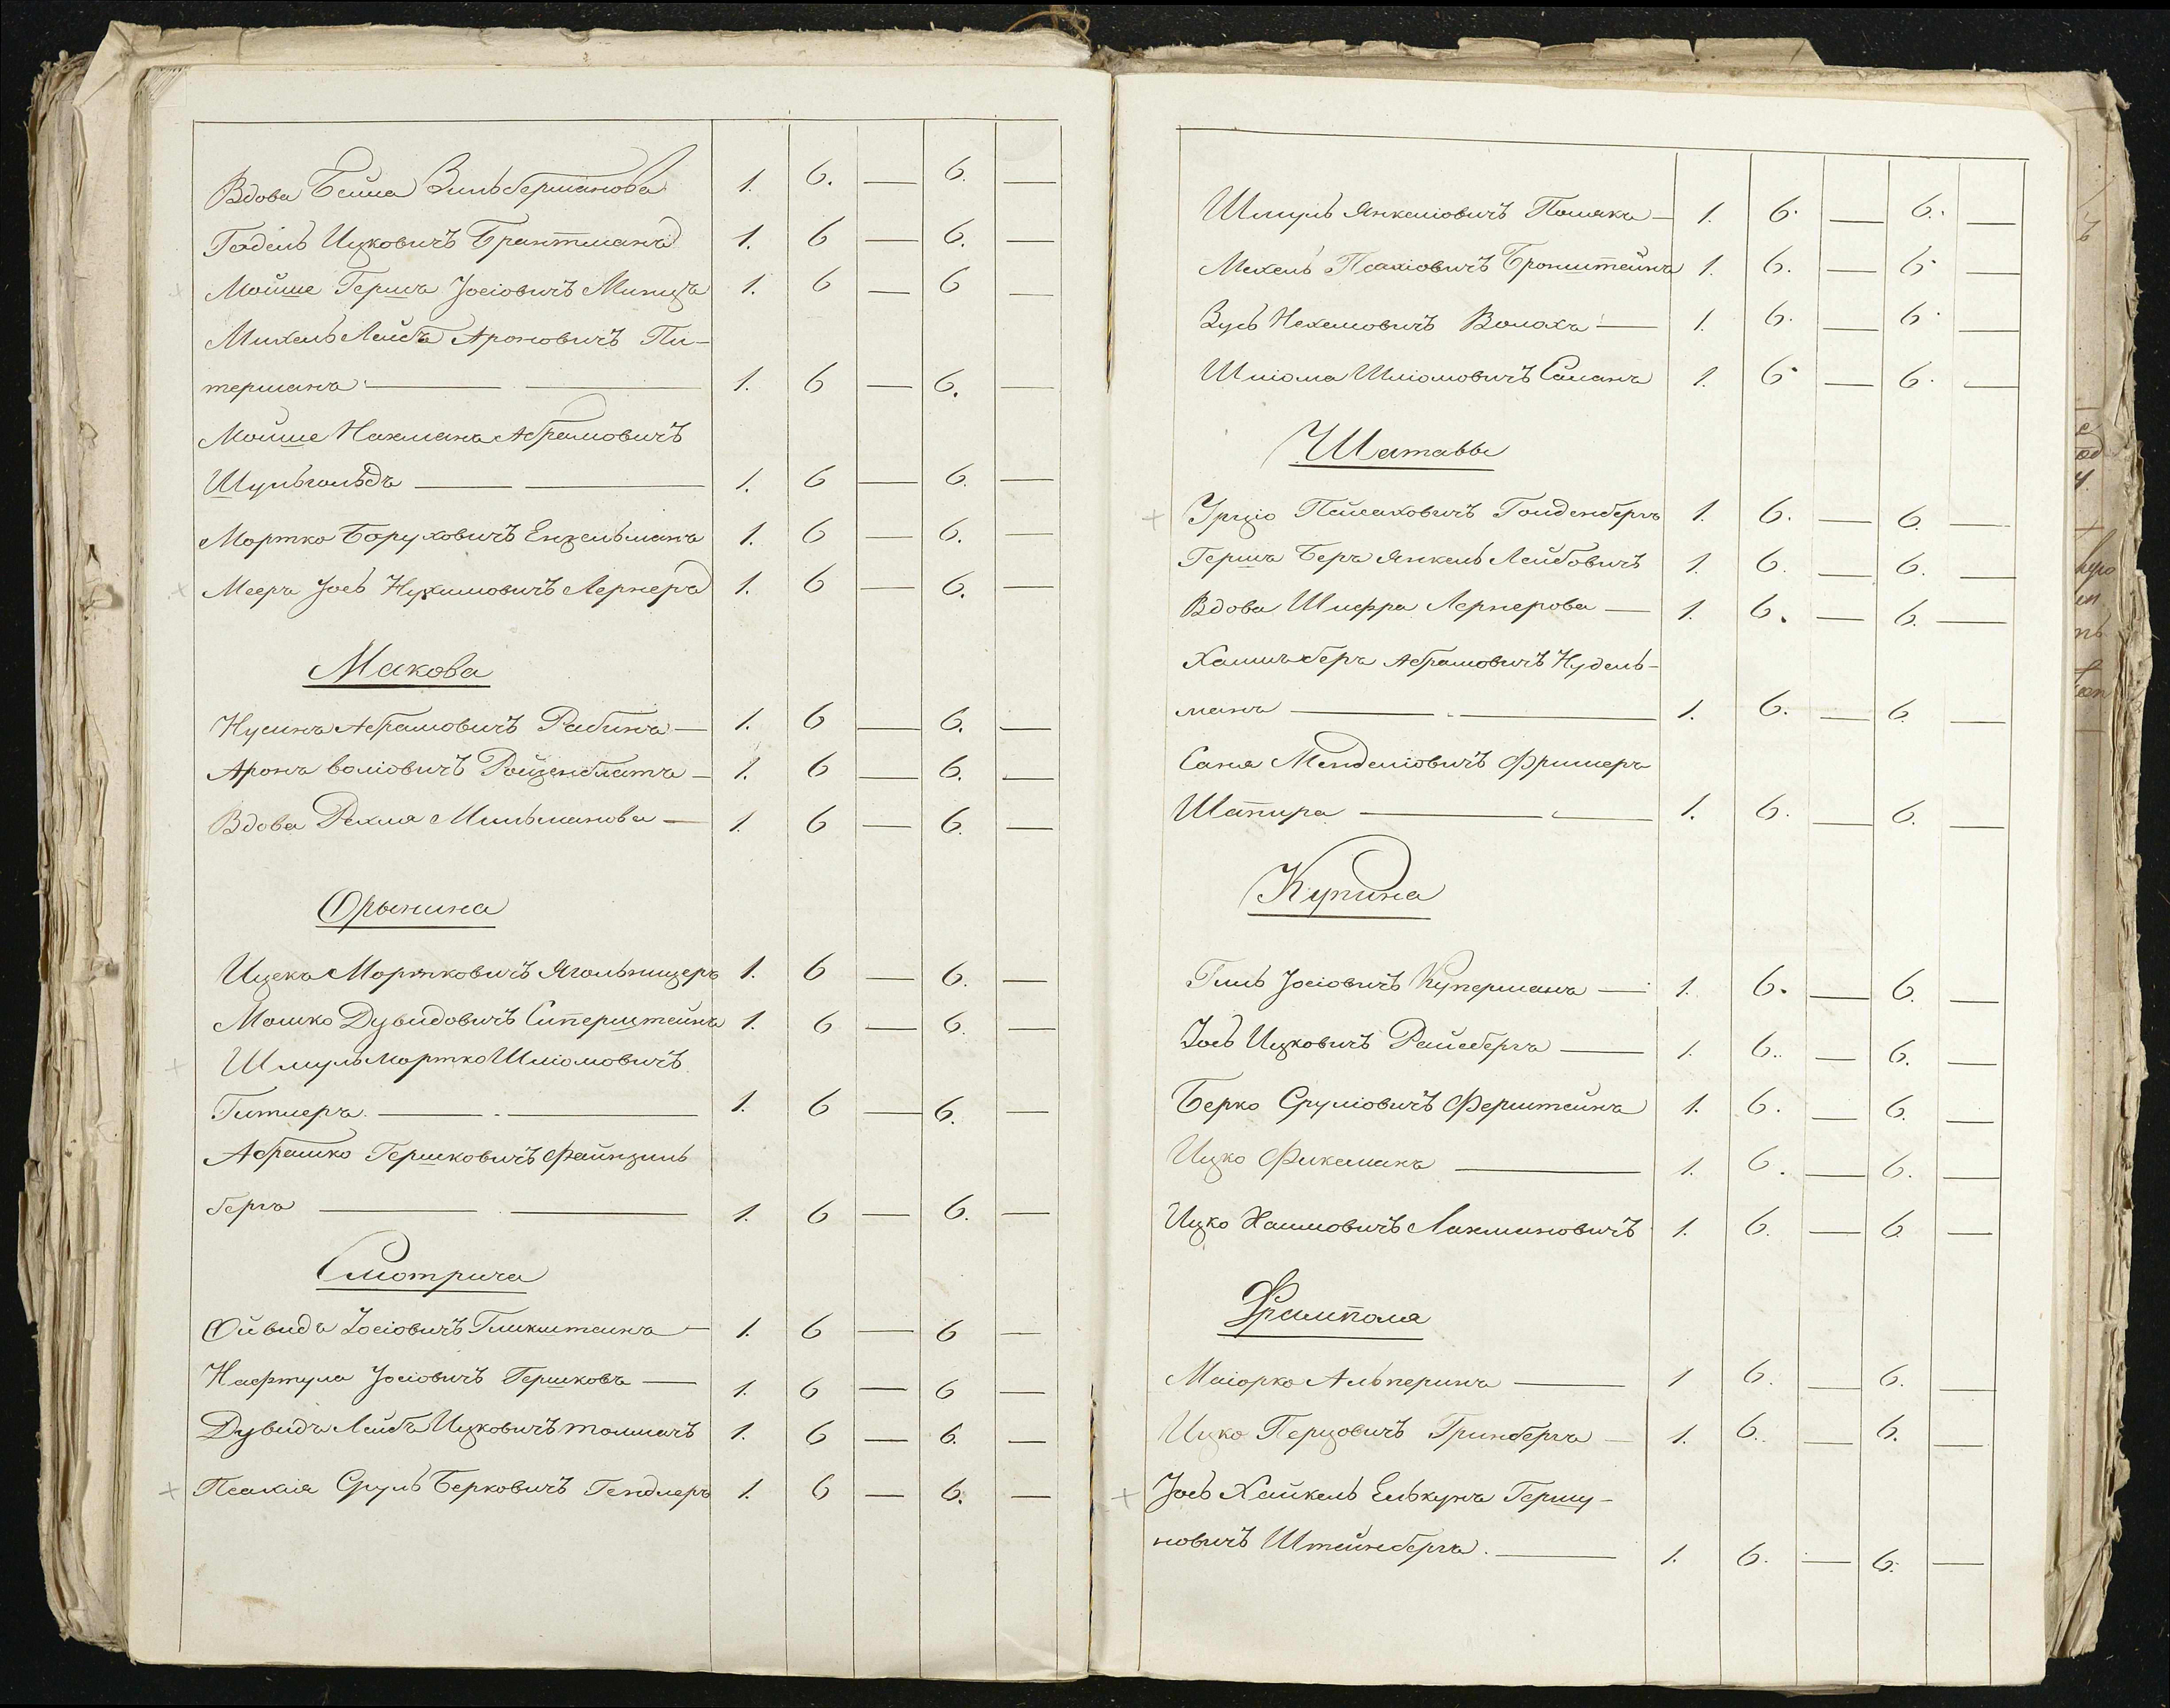 Вдова Бейла Зильбермановa 1. 6. — 6. —
Годель Ицковичъ Брантманъ 1. 6 — 6. —
Мойше Гершъ Іосіовичъ Миницъ 1. 6 — 6 —
Михель Лейбъ Ароновичъ Пи-
терманъ — — 1. 6 — 6. —
Мойше Нахманъ Абрамовичъ
Шульгольдъ — — 1. 6 — 6. —
Мортко Боруховичъ Енцельманъ 1. 6 — 6. —
Мееръ Іось Нухимовичъ Лернеръ 1. 6 — 6. —
Макова
Нусинъ Абрамовичъ Рабинъ — 1. 6 — 6. —
Аронъ Воліовичъ Ройценблатъ — 1. 6 — 6. —
Вдова Рехля Мильманова — 1. 6 — 6. —
Орынина
Ицекъ Мортковичъ Ягольницеръ 1. 6 — 6. —
Мошко Дувидовичъ Сиперштейнъ 1. 6 — 6. —
Шмуль Мортко Шліомовичъ
Гитлеръ — — 1. 6 — 6. —
Абрамко Гершковичъ Файнзиль
бергъ — — 1. 6 — 6. —
Смотрича
Ойвидъ Іосіовичъ Гликштейнъ — 1. 6 — 6 —
Нафтула Іосіовичъ Гершковъ — 1. 6 — 6 —
Дувидъ Лейбъ Ицковичъ Толмачъ 1. 6 — 6. —
Псахія Сруль Берковичъ Гендлеръ 1. 6 — 6. —
Шмуль Янкеліовичъ Полякъ — 1. 6. — 6. —
Мехель Псахіовичъ Бронштейнъ 1. 6. — 6 —
Зусь Нехемовичъ Волохъ — 1. 6. — 6. —
Шліома Шліомовичъ Саланъ 1. 6. — 6. —
Шатавы
Урціо Пейсаховичъ Голденбергъ 1. 6. — 6. —
Гершъ Беръ Янкель Лейбовичъ 1. 6. — 6. —
Вдова Шифра Лернерова — 1. 6. — 6. —
Хаимъ беръ Абрамовичъ Нудель-
манъ — — 1. 6. — 6. —
Саня Менделіовичъ Фришеръ
Шапира — — 1. 6. — 6. —
Купина
Гиль Іосіовичъ Куперманъ — 1. 6. — 6. —
Іось Ицковичъ Райсбергъ — 1. 6. — 6. —
Берко Сруліовичъ Ферштейнъ 1. 6. — 6. —
Ицко Фиксманъ — 1. 6. — 6. —
Ицко Хаимовичъ Лахмановичъ 1. 6. — 6. —
Фрамполя
Маіорко Альперинъ — 1 6. — 6. —
Ицко Перцовичъ Гринбергъ — 1. 6. — 6. —
Іось Хайкель Елькунъ Гершу-
новичъ Штейнбергъ. — 1. 6. — 6. —